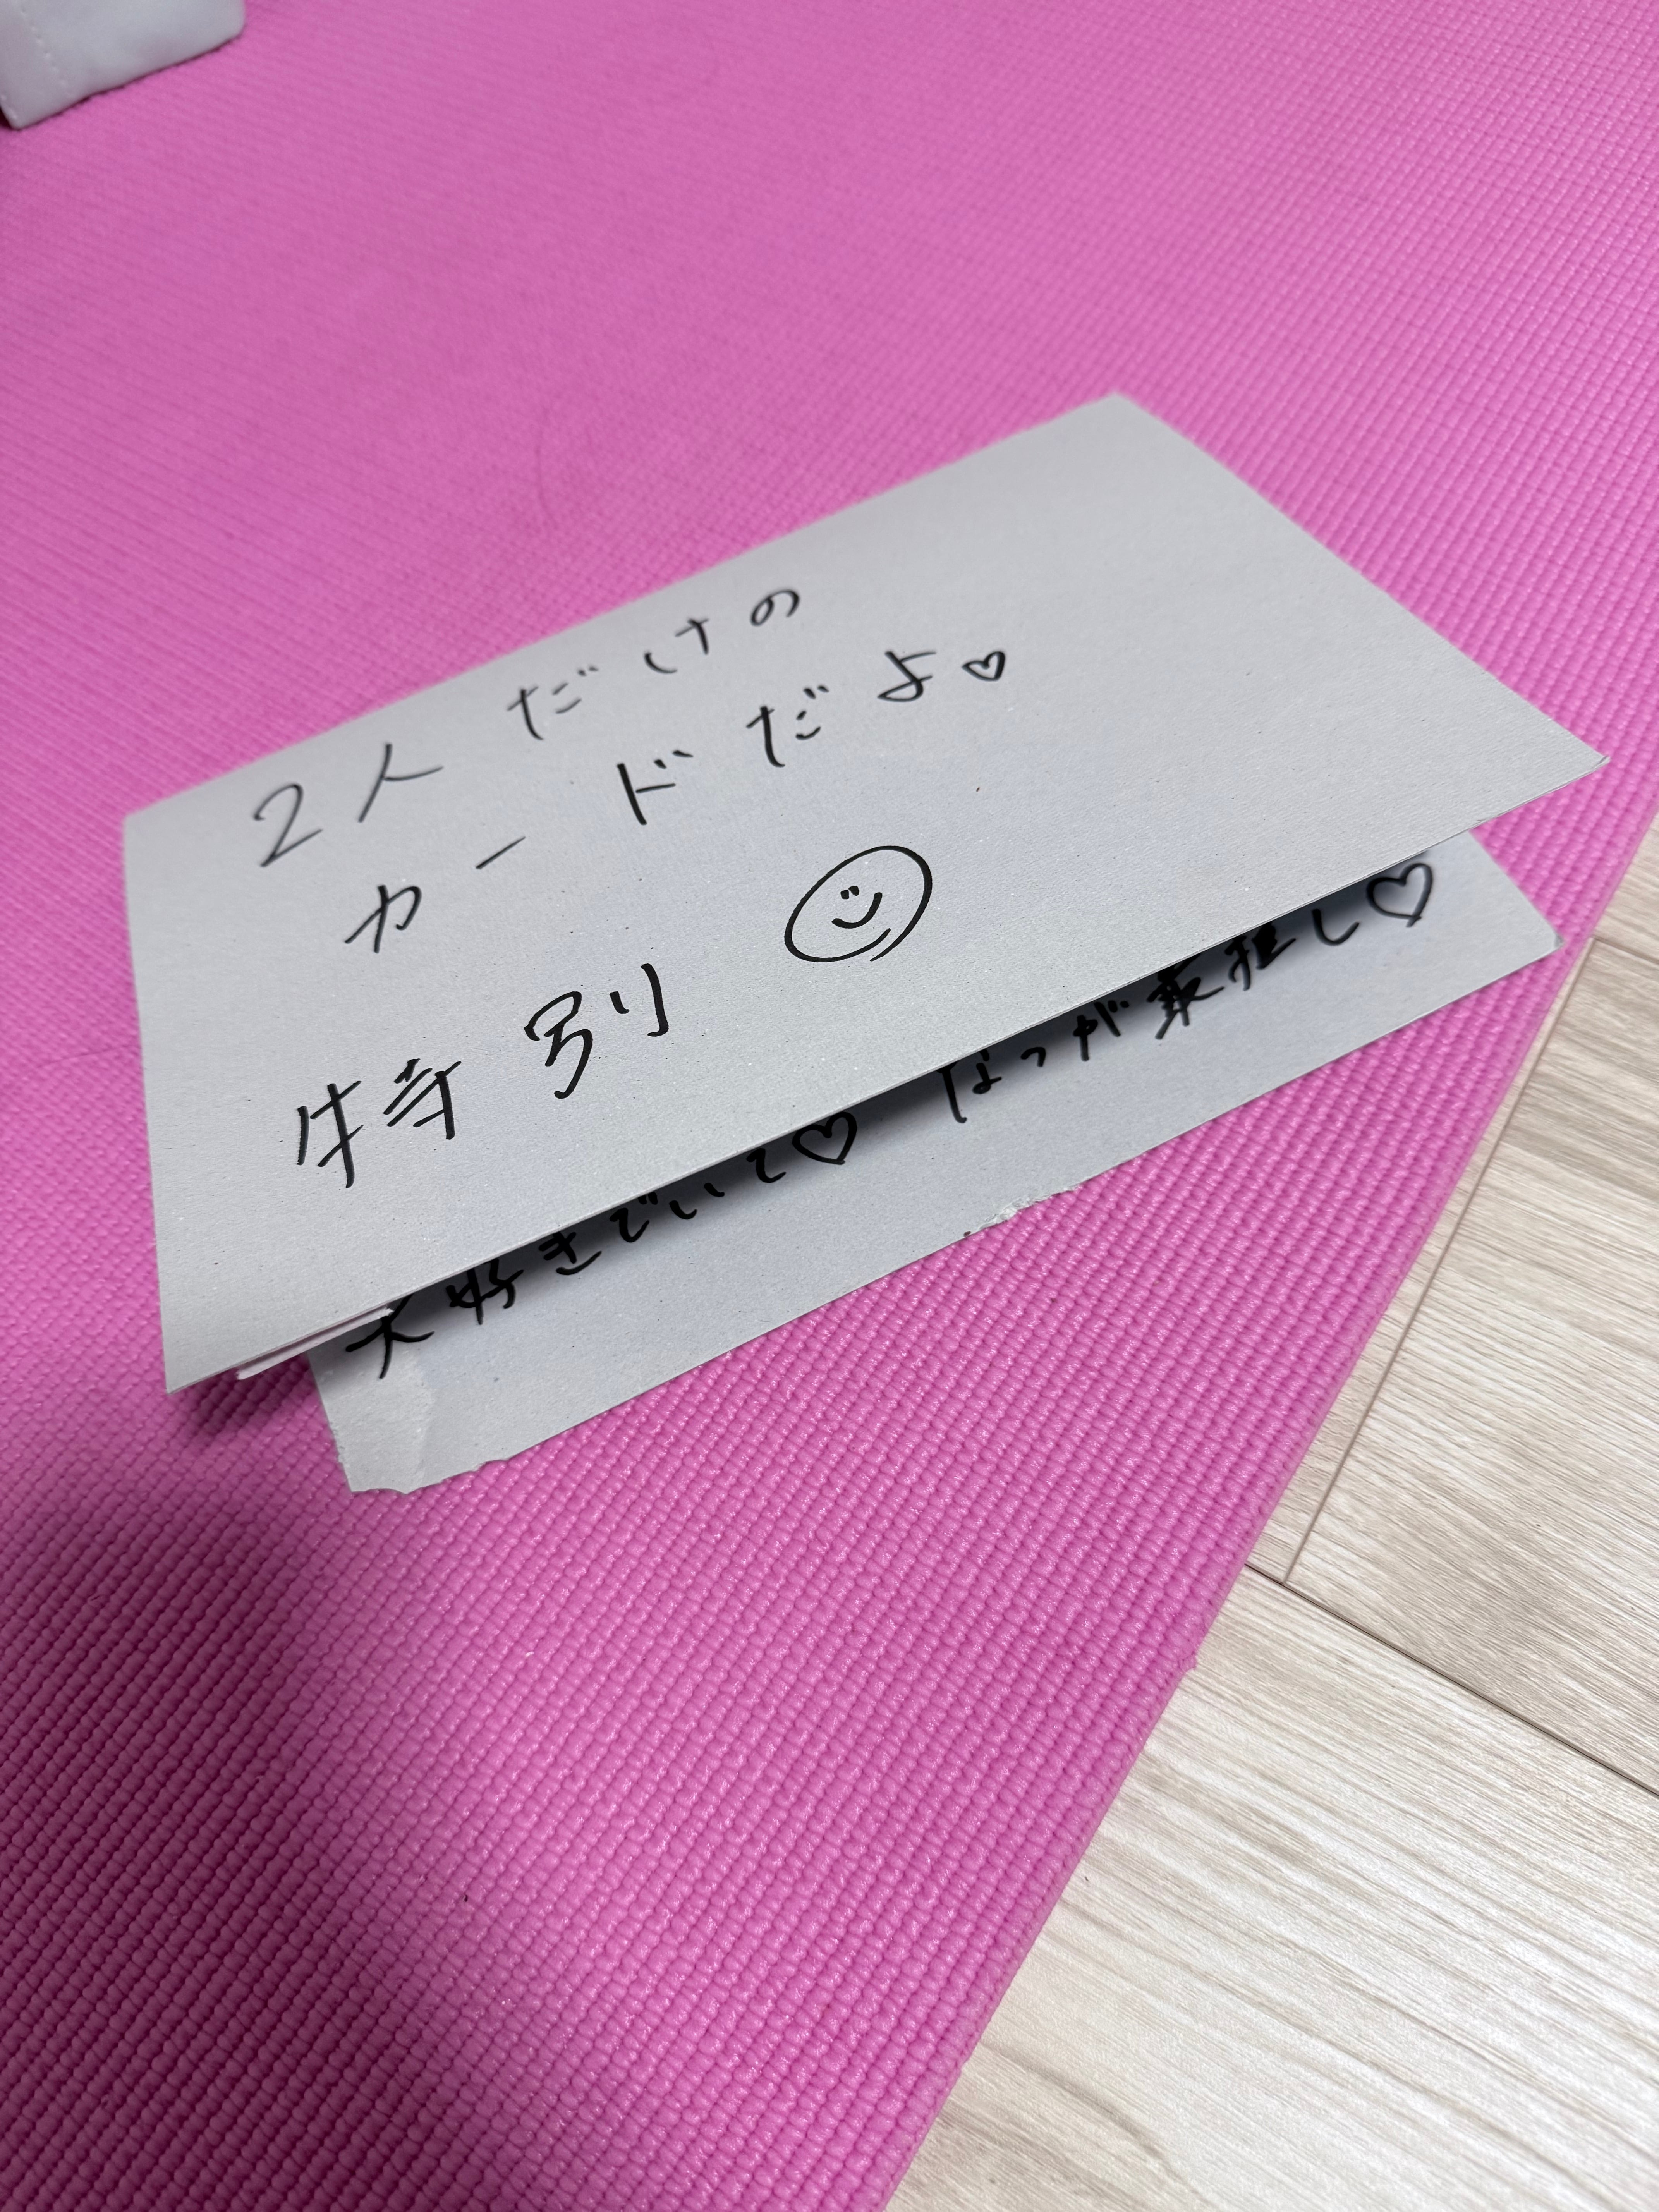 2人だけの
カードだよ♡
特別
大好きでいて♡ なっが最推し♡